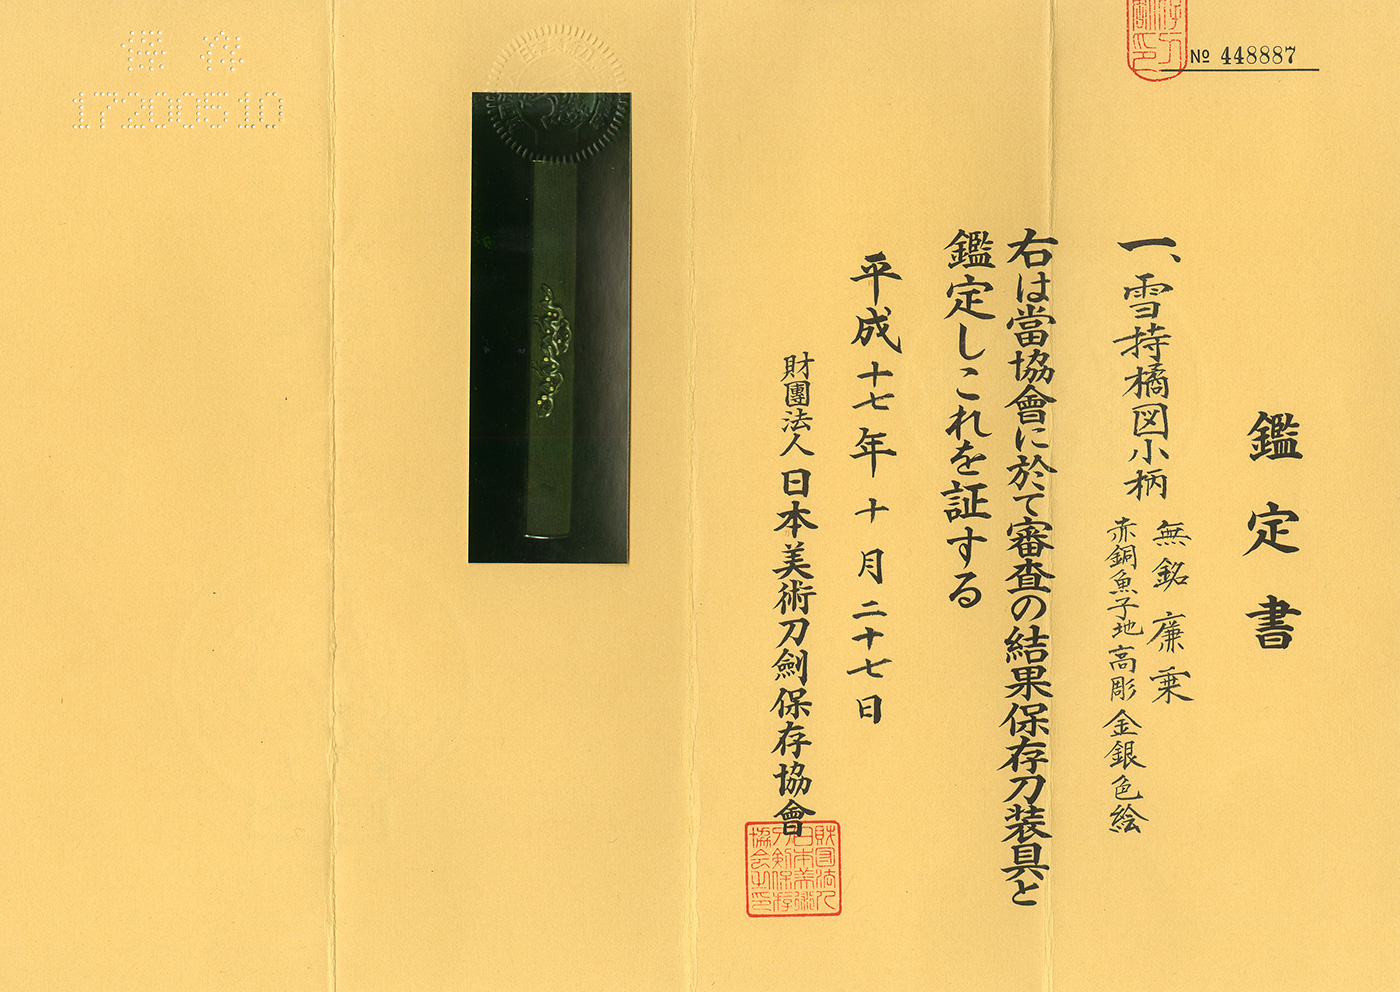 № 448887
鑑定書
一、雪持橘図小柄
無銘 廉乗
赤銅魚子地高彫金銀色絵
右は當協會に於て審査の結果保存刀装具と
鑑定しこれを証する
平成十七年十月二十七日
財團法人 日本美術刀劍保存協會
保存
17200510